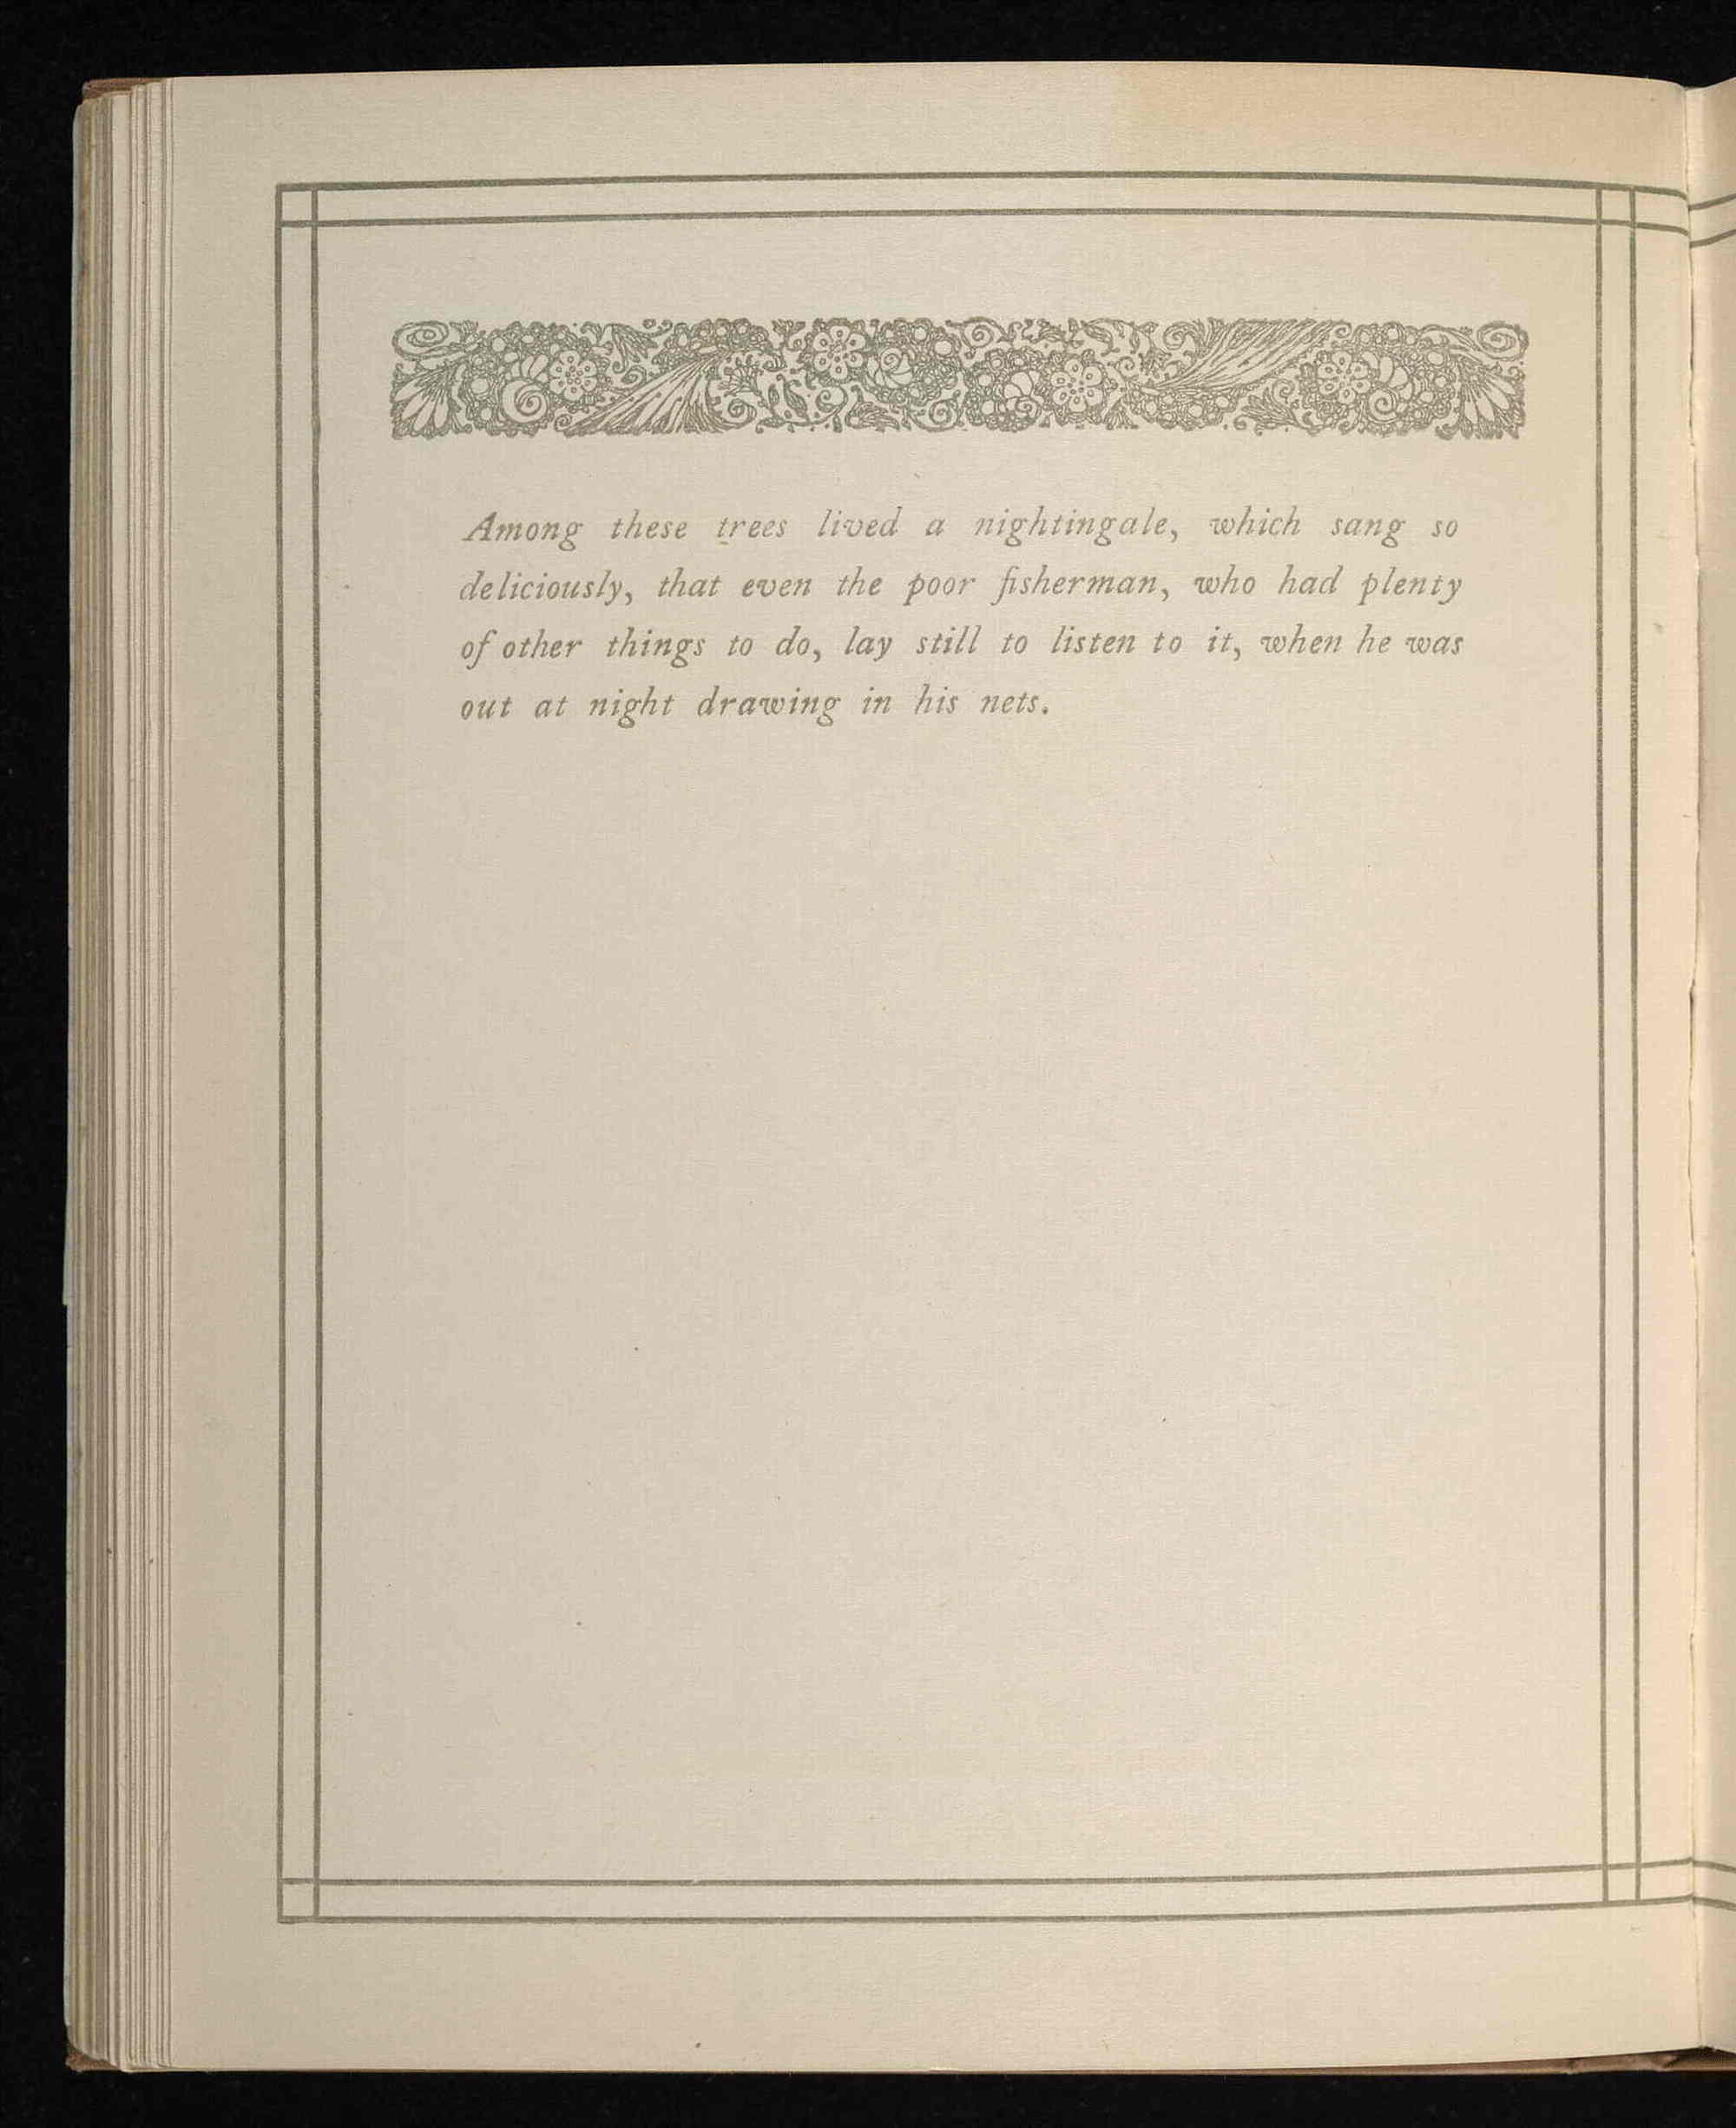 Among these trees lived a nightingale, which sang so
deliciously, that even the poor fisherman, who had plenty
of other things to do, lay still to listen to it, when he was
out at night drawing in his nets.